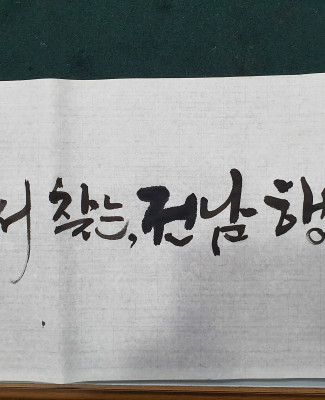 서 찾는, 전남 행